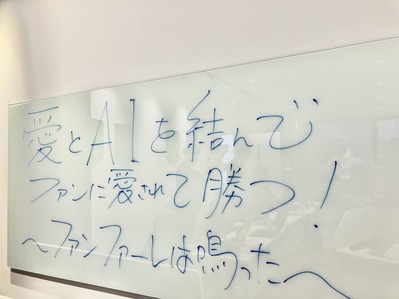 愛とAIを結んで
ファンに愛されて勝つ!
～ファンファーレは鳴った～